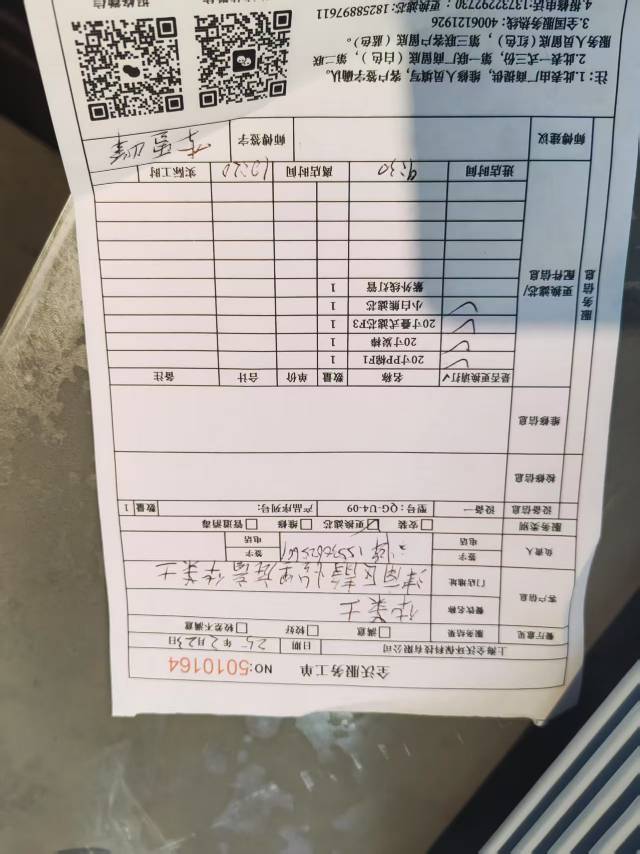 全沃服务工单 NO:5010164
上海全沃环保科技有限公司 日期 25年2月23日
餐厅意见 服务结果 满意 较好 较差不满意
客户信息 餐饮名称
门店地址
负责人 签字 电话 签字 电话
服务类别 安装 更换滤芯 维修 管道消毒
设备信息 设备一 型号：QG-U4-09 产品序列号： 数量 1
检修信息
维修信息
服务信息 更换滤芯/配件信息
是否更换请打√ 名称 数量 单价 合计 备注
20寸PP棉F1 1
20寸炭棒 1
20寸叠式滤芯F3 1
小白熊滤芯 1
紫外线灯管 1
进店时间 9:30 离店时间 10:20 实际工时
师傅建议 师傅签字
注：1.此表由厂商提供，维修人员填写，客户签字确认。
2.此表一式三份，第一联厂商留底（白色），第二联
服务人员留底（红色），第三联客户留底（蓝色）。
3.全国服务热线：4006121926